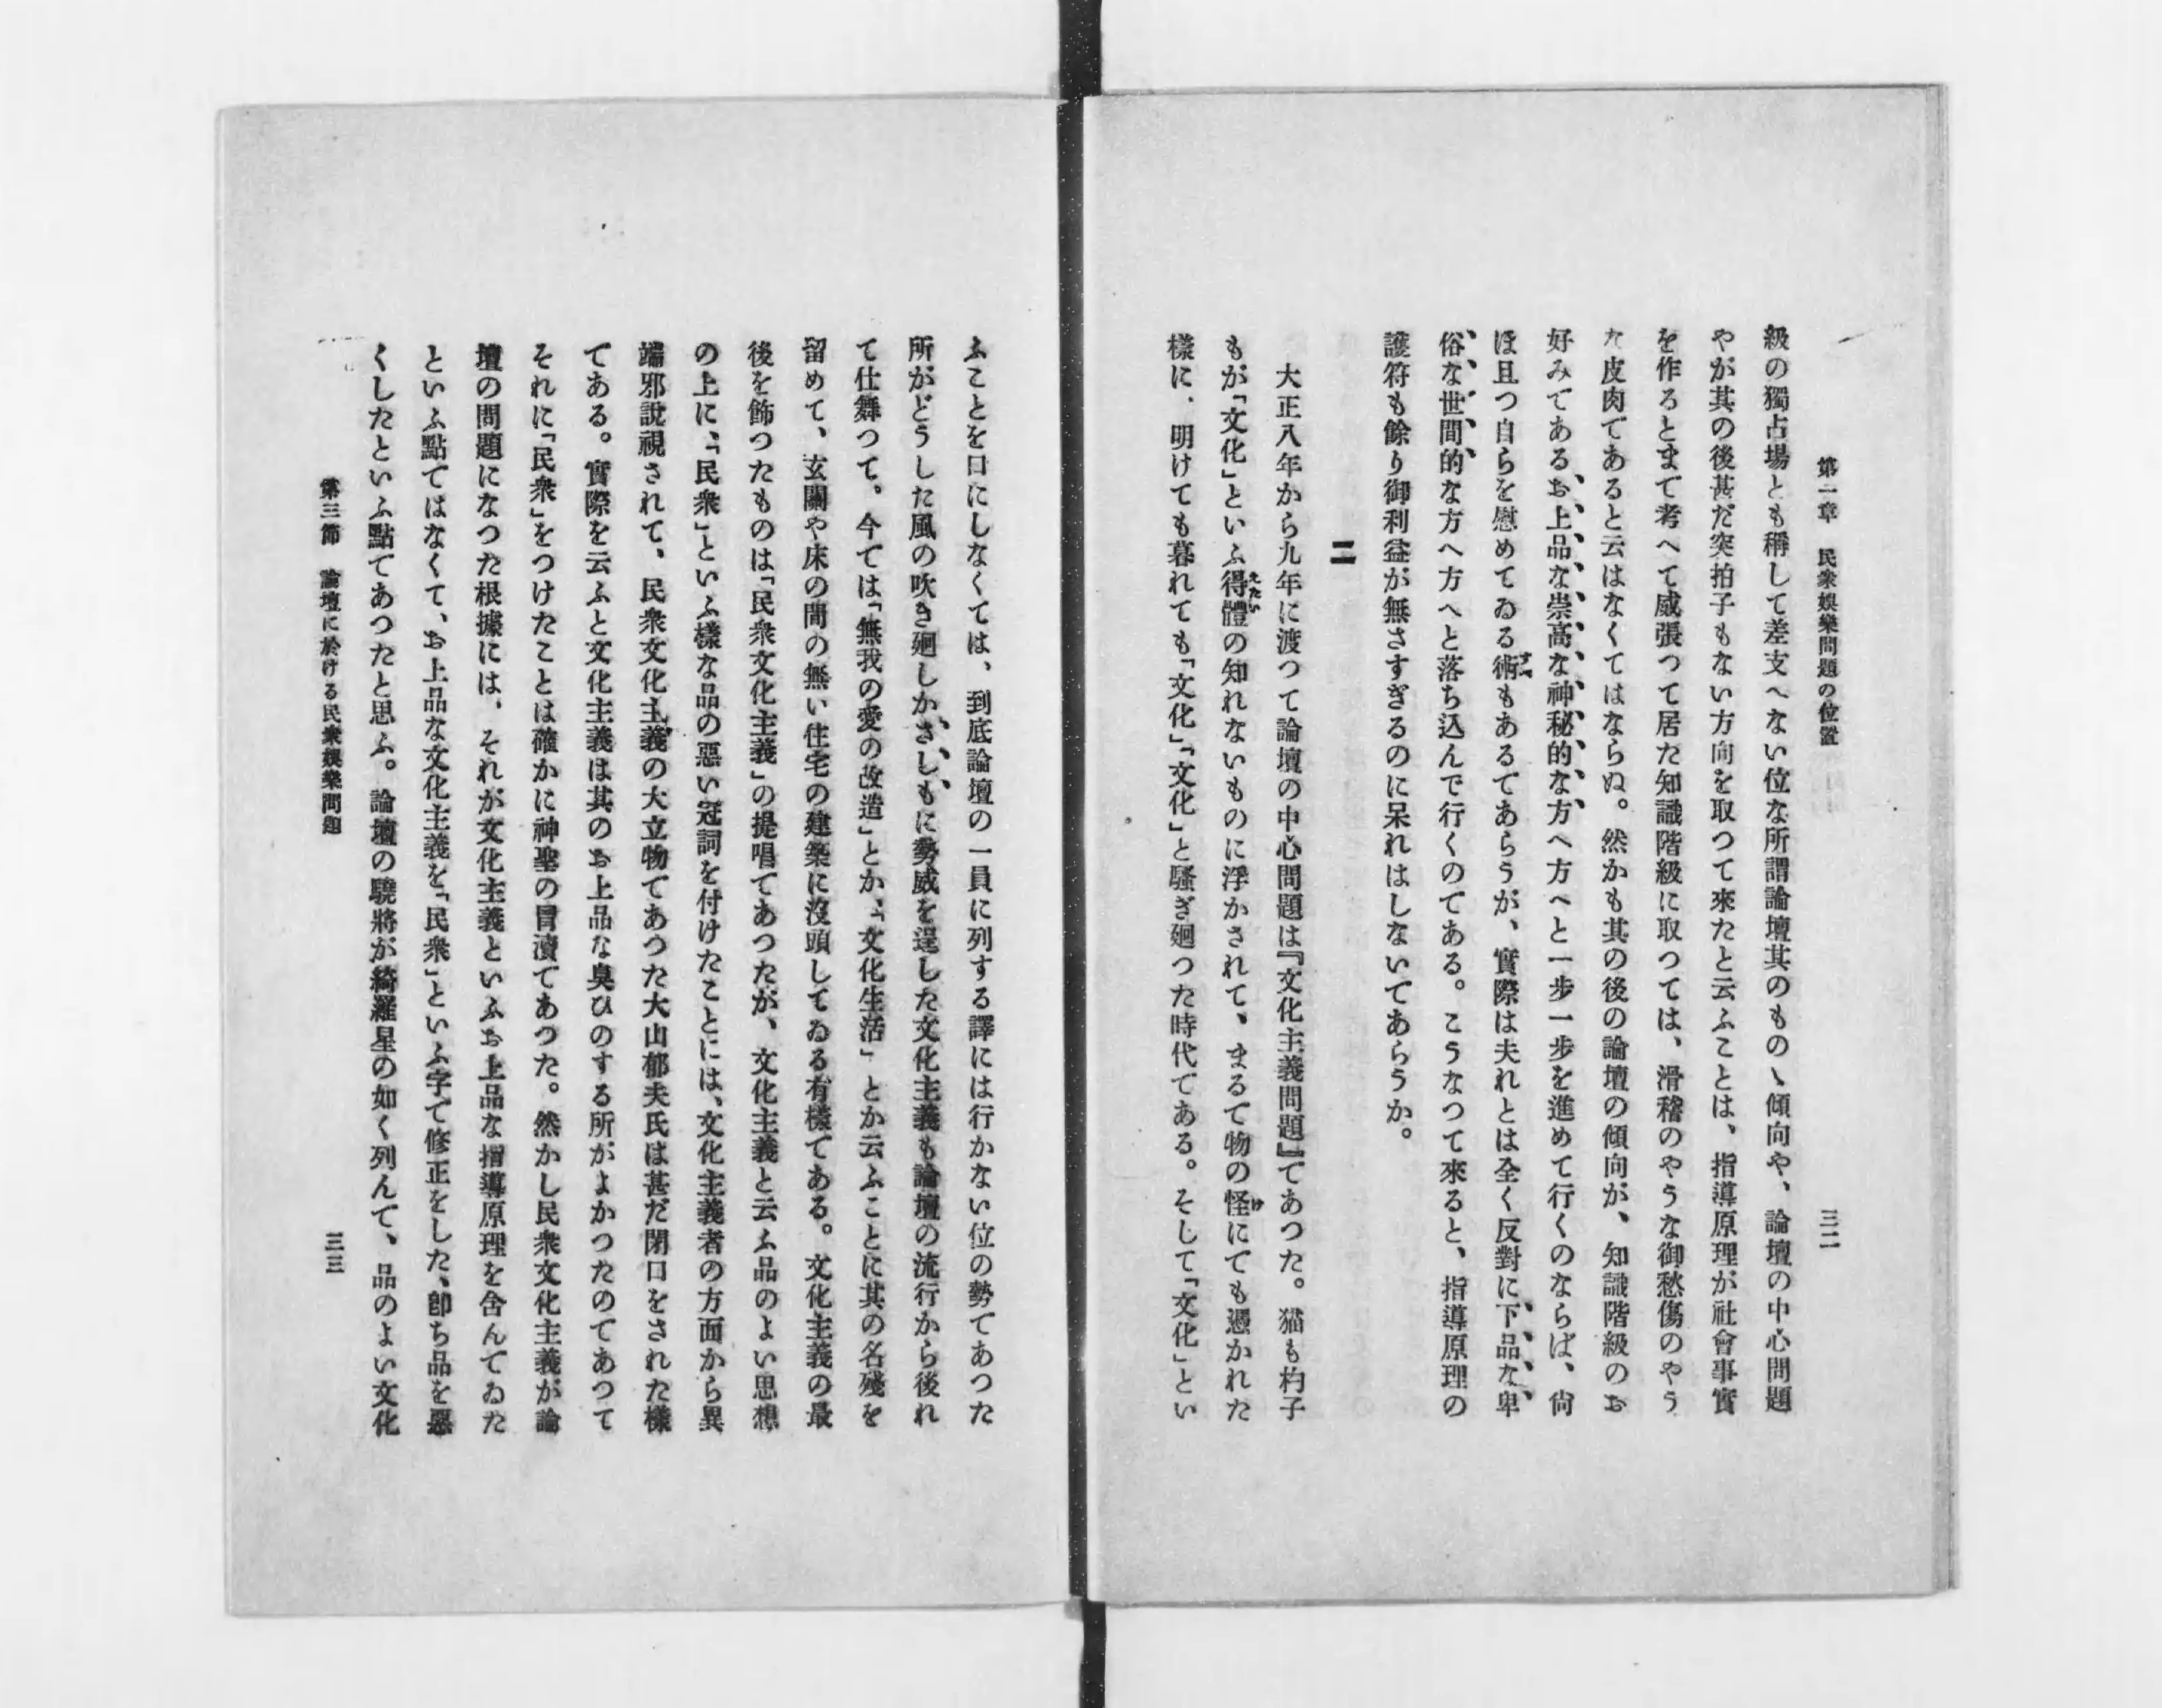 第一章　民衆娯樂問題の位置
三二
級の獨占場とも稱して差支へない位な所謂論壇其のものゝ傾向や、論壇の中心問題
やが其の後甚だ突拍子もない方向を取つて來たと云ふことは、指導原理が社會事實
を作るとまで考へて威張つて居た知識階級に取つては、滑稽のやうな御愁傷のやう
な皮肉であると云はなくてはならぬ。然かも其の後の論壇の傾向が、知識階級のお
好みである、お上品な崇高な神秘的な方へ方へと一步一步を進めて行くのならば、尙
ほ且つ自らを慰めてゐる術もあるであらうが、實際は夫れとは全く反對に、下品な、卑
俗な世間的な方へ方へと落ち込んで行くのである。こうなつて來ると、指導原理の
護符も餘り御利益が無さすぎるのに呆れはしないであらうか。
二
大正八年から九年に渡つて論壇の中心問題は『文化主義問題』であつた。猫も杓子
もが「文化」といふ得體の知れないものに浮かされて、まるで物の怪にでも憑かれた
樣に、明けても暮れても「文化」「文化」と騷ぎ廻つた時代である。そして「文化」とい
ふことを口にしなくては、到底論壇の一員に列する譯には行かない位の勢であつた
所がどうした風の吹き廻しか、さしもに勢威を逞した文化主義も論壇の流行から後れ
て仕舞つて、今では「無我の愛の改造」とか、「文化生活」とか云ふことに其の名殘を
留めて、玄關や床の間の無い住宅の建築に沒頭してゐる有樣である。文化主義の最
後を飾つたものは「民衆文化主義」の提唱であつたが、文化主義と云ふ品のよい思想
の上に、「民衆」といふ樣な品の惡い冠詞を付けたことには、文化主義者の方面から異
端邪說視されて、民衆文化主義の大立物であつた大山郁夫氏は甚だ閉口をされた樣
である。實際を云ふと文化主義は其のお上品な臭ひのする所がよかつたのであつて
それに「民衆」をつけたことは確かに神聖の冒瀆であつた。然かし民衆文化主義が論
壇の問題になつた根據には、それが文化主義といふお上品な指導原理を含んでゐた
といふ點ではなくて、お上品な文化主義を「民衆」といふ字で修正をした、卽ち品を惡
くしたといふ點であつたと思ふ。論壇の驍將が綺羅星の如く列んで、品のよい文化
第三節　論壇に於ける民衆娯樂問題
三三